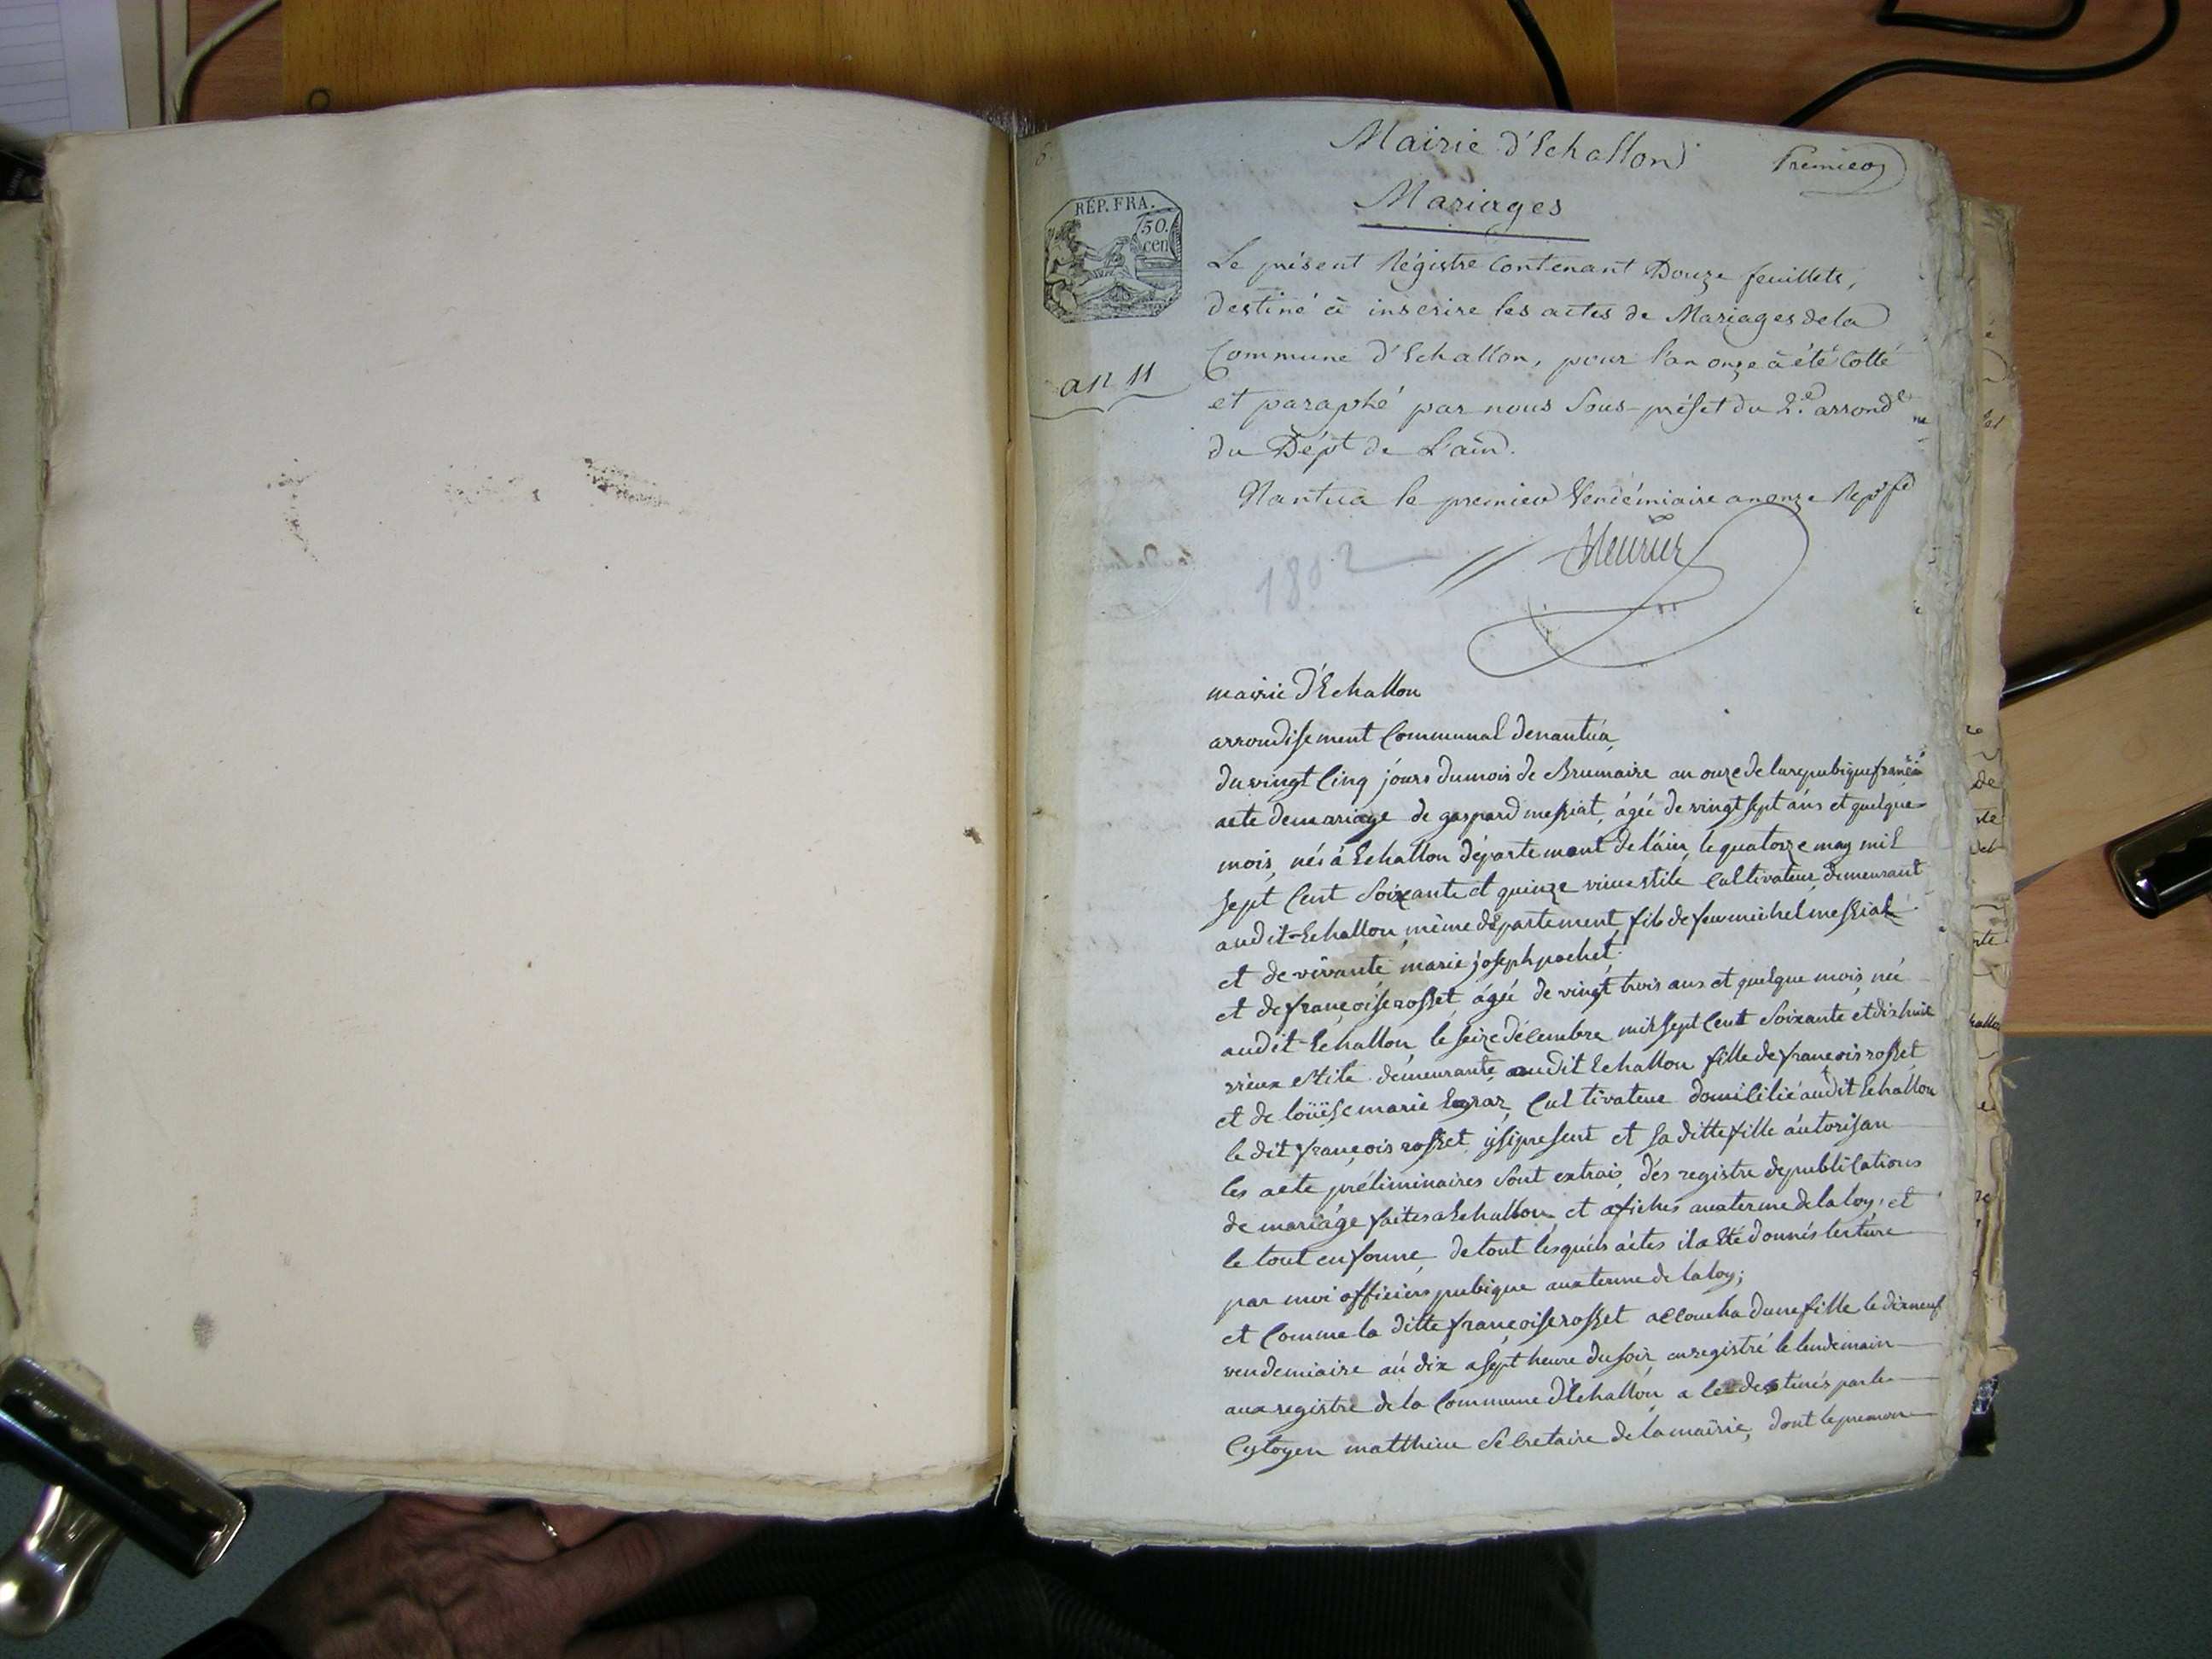 Mairie d'Echallon
Premier
Mariages
REP. FRA.
50.
cen
Le présent Régistre Contenant Douze feuillets,
destiné à inscrire les actes de Mariages de la
Commune d'Echallon, pour l'an onze à été Cotté
an 11
et paraphé par nous Sous-préfet du 2.e arrond
du Dépt de L'ain.
Nantua le premier Vendémiaire an onze
1802
mairie d'Echallon
arrondissement Communal denantua
du vingt Cinq jours dumois de Brumaire an onze de larepubique
acte demariage de gaspard messiat, ágée de vingt sept ans et quelque
mois, née á Echallon département de láin, le quatorze may mil
sept Cent Soixante et quinze vieux stile Cultivateur demeurant
audit Echallon même département, fils de feu michel messiat
et de vivante marie joseph pochet
et de françoise rosset ágée de vingt trois ans et quelque mois née
audit Echallon le seize décembre mil sept Cent Soixante et dix huit
vieux stile demeurante audit Echallon fille de françois rosset
et de loüise marie Cultivateur domicilié audit Echallon
le dit françois rosset ysi present et sa ditte fille áutorisan
les acte préliminaires Sont extrais, dés registre depublications
de mariáge faites a Echallon et afichés auxterme delaloy, et
le tout en forme, de tout lesquéls áctes il a été donnés lecture
par moi officiers pubique aux terme de laloy;
et Comme la ditte françoise rosset accoucha dune fille le dixneuf
vendemiaire aú dix a sept heure du soir, enregistré le lendemain
aux registre de la Commune d'Echallon a destinés par le
Cytoyen matthieu Sécretaire de lamairie, dont